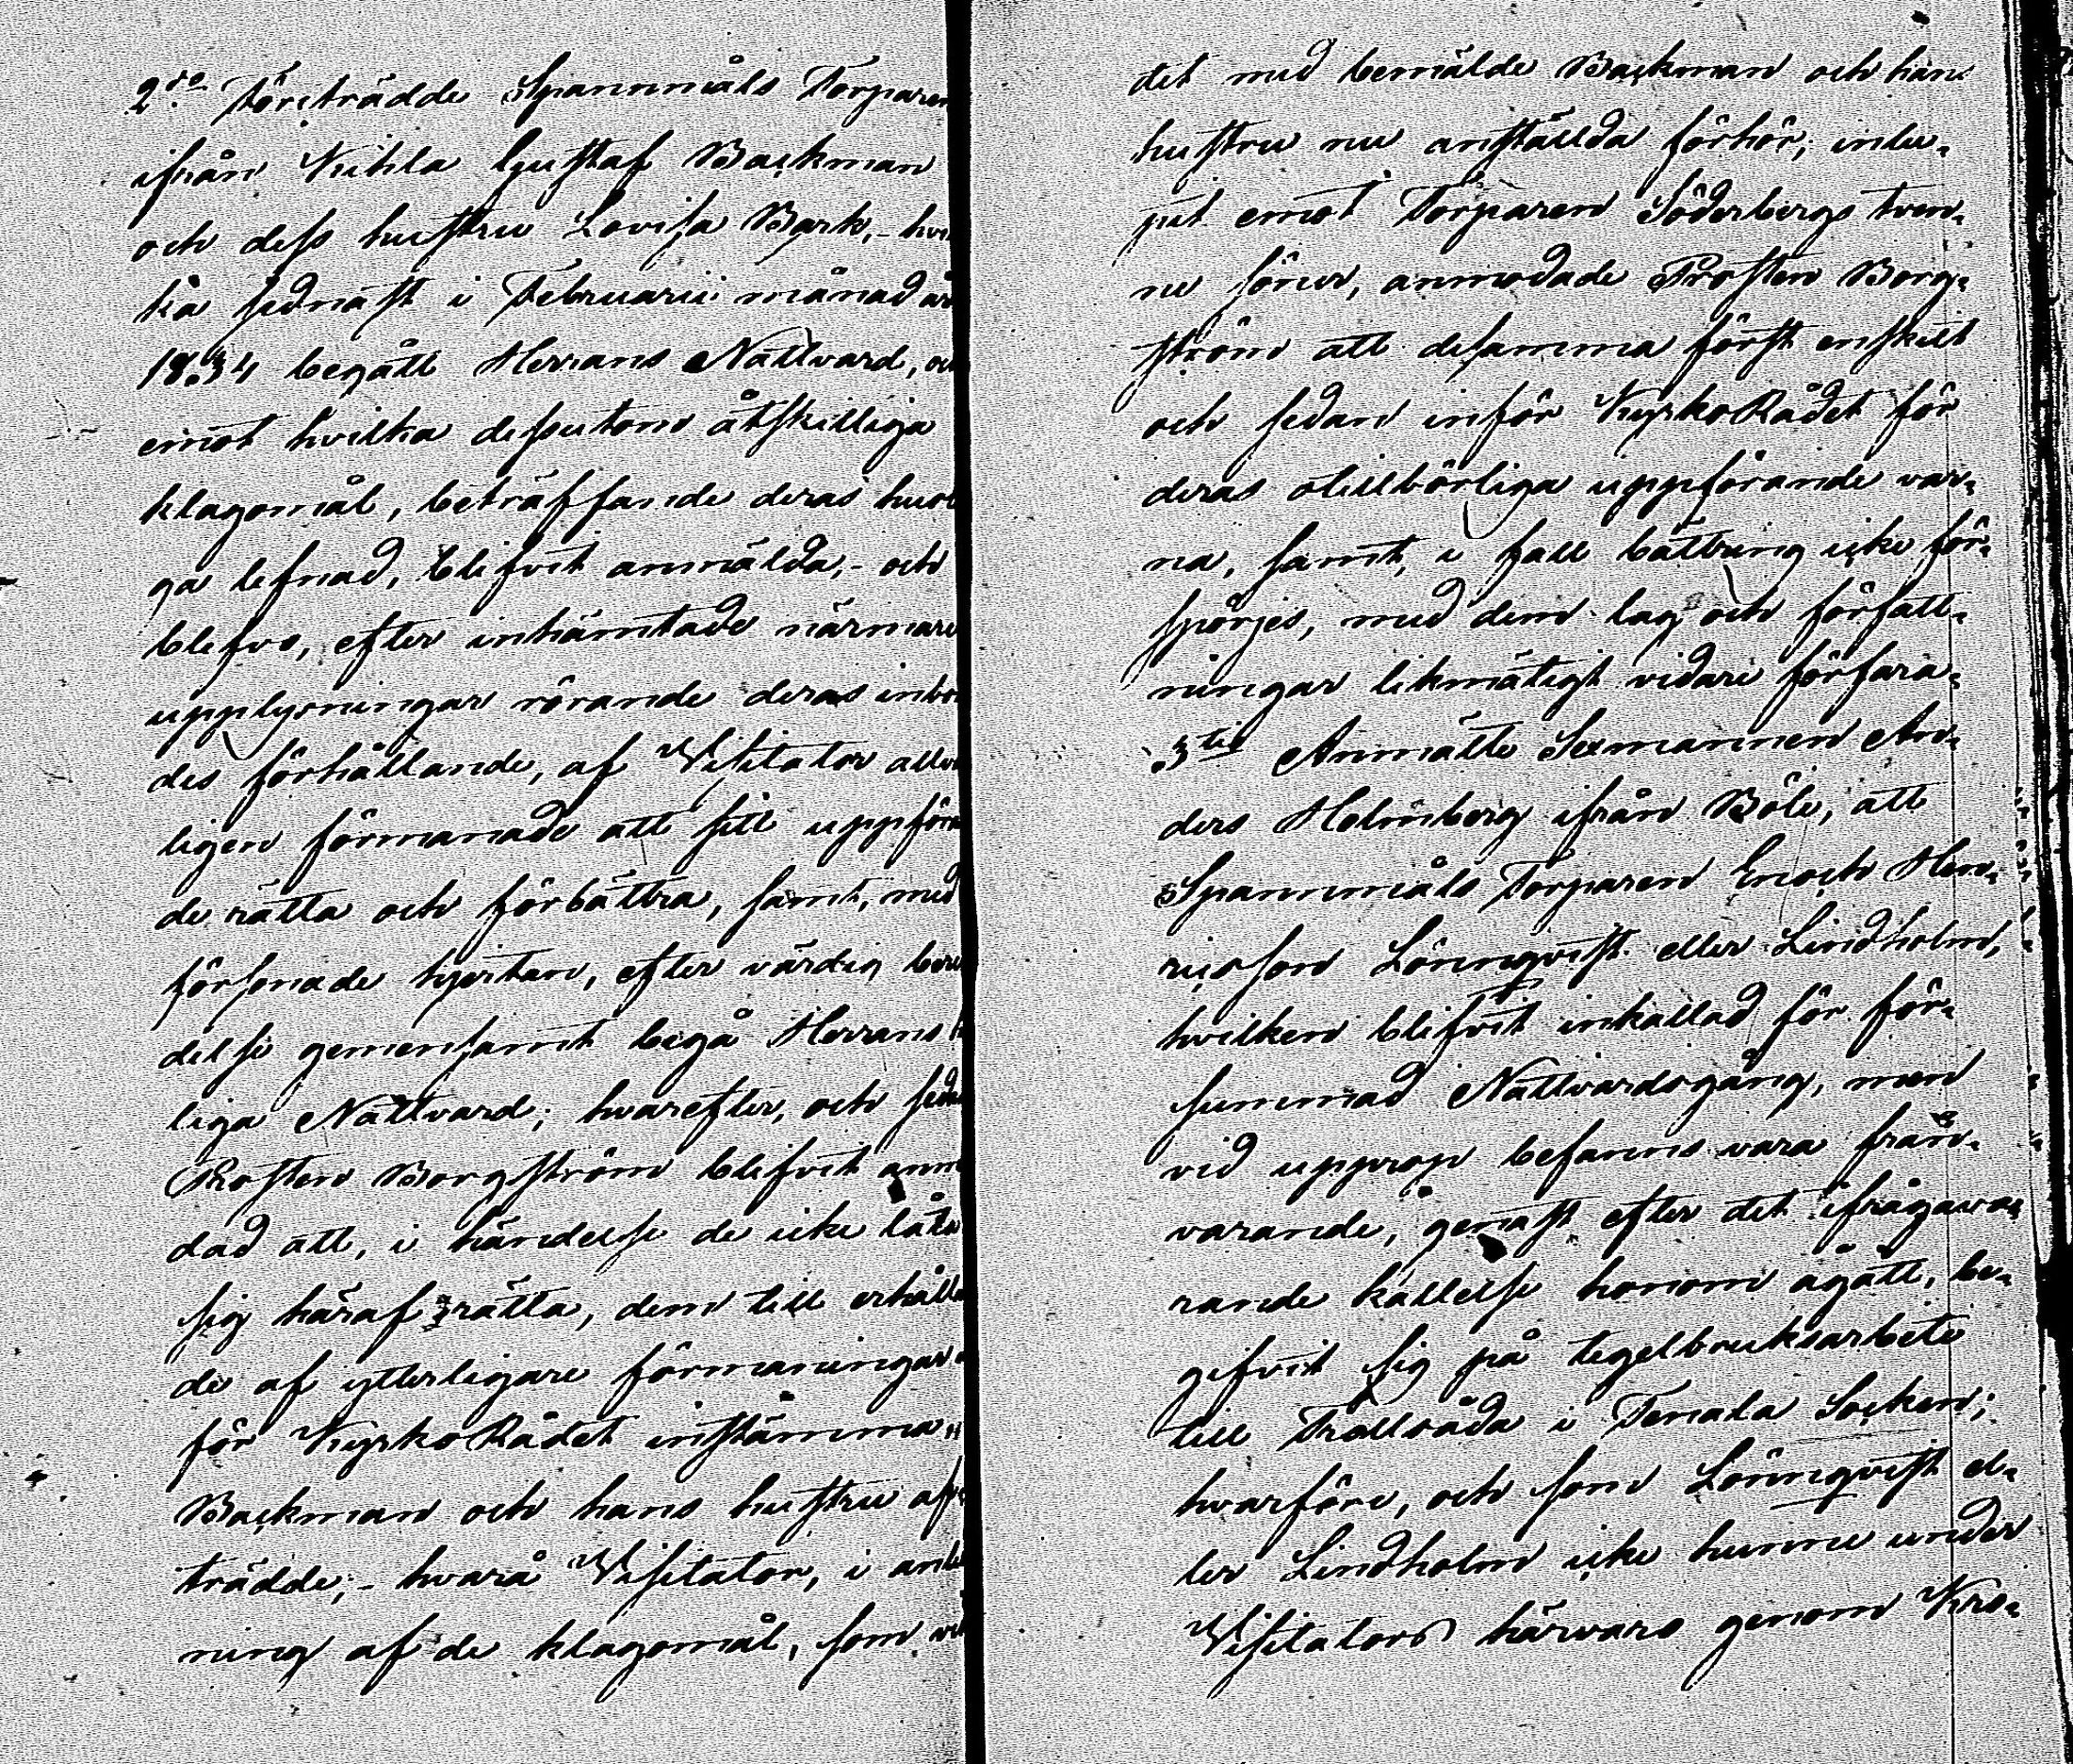 2do Företrädde Spannmåls Torparen
ifrån Kihla Gustaf Backman
och dess hustru Lovisa Bark,- hvil
ka sednast i Februarii månad år
1834 begått Herrans Nattvard, och
emot hvilka dessutom åtskilliga
klagomål, beträffande deras husli
ga lefnad, blifvit anmälda,- och
blefvo, efter inhämtade närmare
upplysningar rörande deras inbör
des förhållande, af Visitator allvar
ligen förmanade att sitt uppföran
de rätta och förbättra, samt, med
försonade hjertan, efter värdig bere
delse gemensamt begå Herrans
liga Nattvard; hvarefter, och sedan
Prosten Borgström blifvit anmo
dad att, i händelse de icke låta
sig häraf rätta, dem till erhållan
de af ytterligare förmaningar
för KyrkoRådet instämma,
Backman och hans hustru af-
trädde;- hvarå Visitator, i anled
ning af de klagomål, som vid
det med bemälde Backman och hans
hustru nu anställda förhör, inlu-
pit emot Torparen Söderbergs tven-
ne söner, anmodade Prosten Borg-
ström att desamma först enskilt
och sedan inför KyrkoRådet för
deras otillbörliga uppförande var-
na, samt, i fall bättring icke för-
spörjes, med dem lag och författ-
ningar likmätigt vidare förfara.
3tio Anmälte Sexmannen An-
ders Holmberg ifrån Böle, att
Spannmåls Torparen Enoch Hen-
ricsson Lönnqvist eller Lindholm,
hvilken blifvit inkallad för för-
summad Nattvardsgång, men
vid upprop befanns vara från-
varande, genast efter det ifrågava-
rande kallelse honom ågått, be-
gifvit sig på tegelbruksarbete
till Trollböda i Tenala Socken;
hvarföre, och som Lönnqvist el-
ler Lindholm icke hunne under
Visitators härvaro genom Kro-